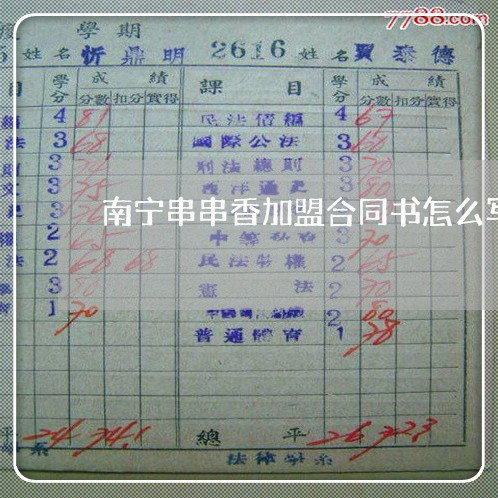 7788.com
學期
姓名 忻鼎明 2616 姓名 賈泰德
目 學分 成績 課目 學分 成績
分數 扣分 實得 分數 扣分 實得
4 81 民法債編 4 67
法 3 68 國際公法 3 60
3 刑法總則 3 70
3 75 西洋通史 3 80
南宁串串香加盟合同书怎么写
2 65 3 70
法 2 68 68 民法物權 2 65
3 80 憲法 2 70
1 70 2 80
普通體育 1 78
平 24 74.1 總平 26 72.3
系 法律學系